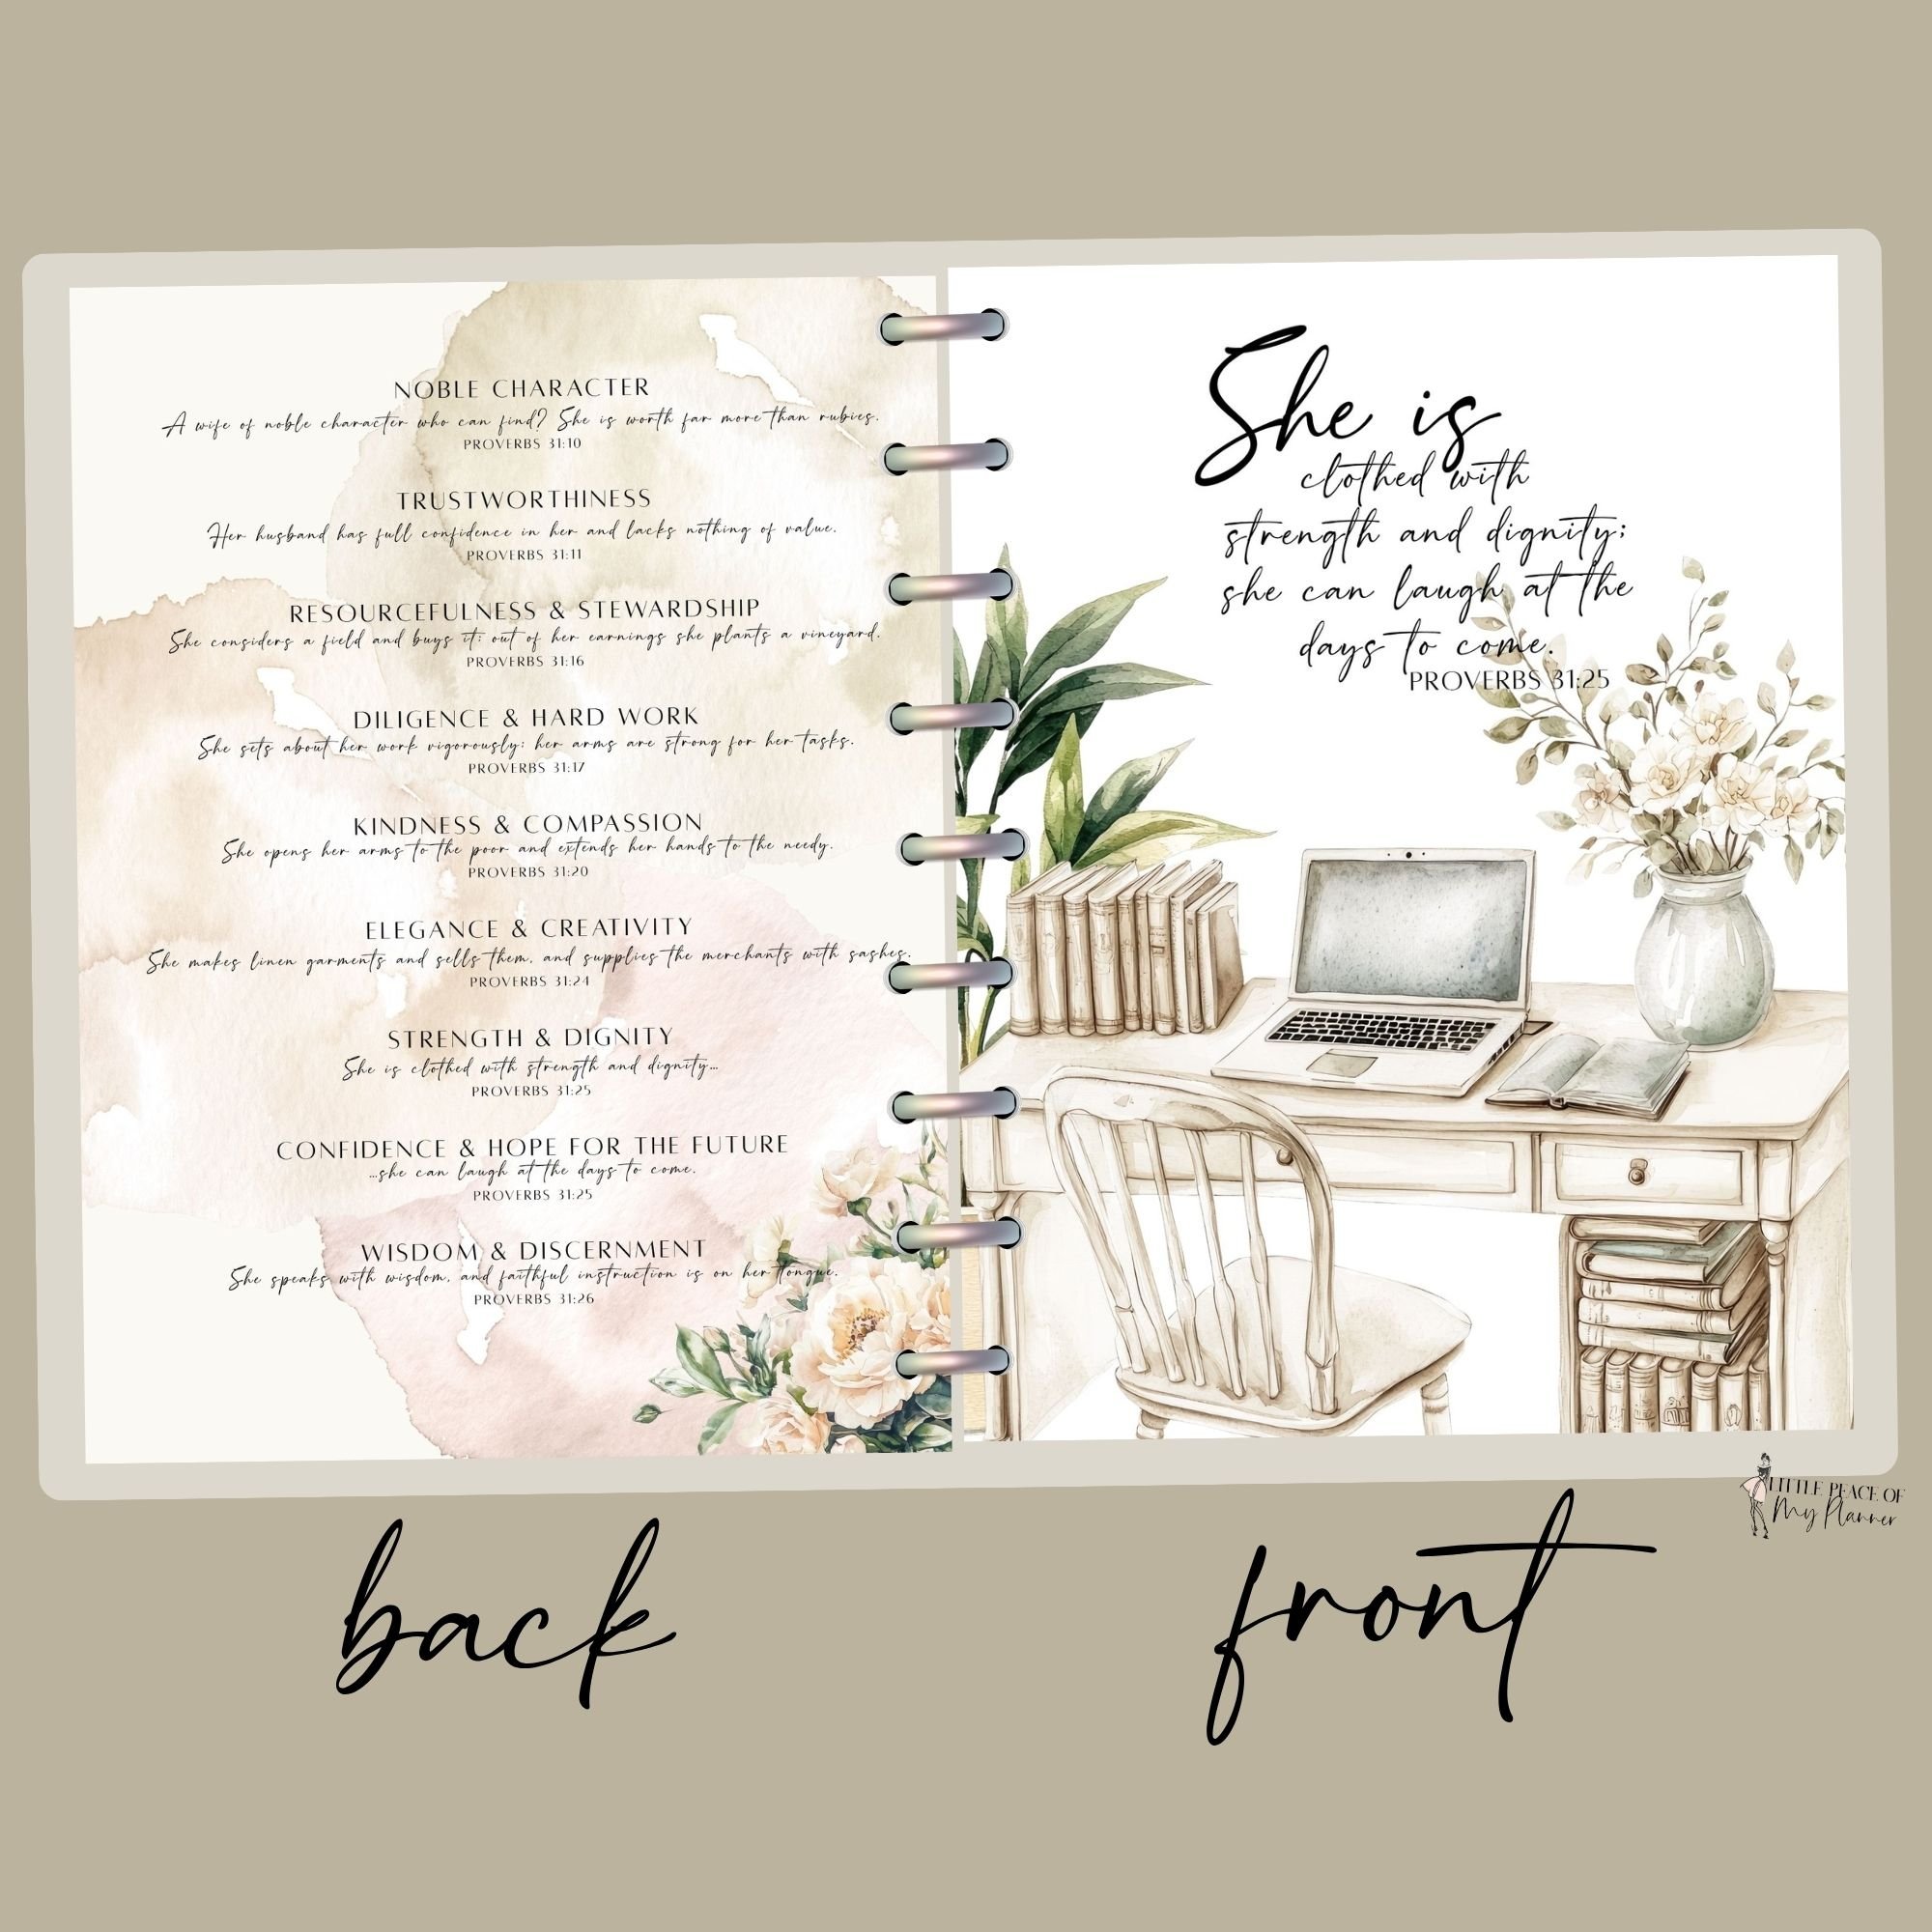 NOBLE CHARACTER
A wife of noble character who can find? She is worth far more than rubies.
PROVERBS 31:10
TRUSTWORTHINESS
Her husband has full confidence in her and lacks nothing of value.
PROVERBS 31:11
RESOURCEFULNESS & STEWARDSHIP
She considers a field and buys it; out of her earnings she plants a vineyard.
PROVERBS 31:16
DILIGENCE & HARD WORK
She sets about her work vigorously; her arms are strong for her tasks.
PROVERBS 31:17
KINDNESS & COMPASSION
She opens her arms to the poor and extends her hands to the needy.
PROVERBS 31:20
ELEGANCE & CREATIVITY
She makes linen garments and sells them, and supplies the merchants with sashes.
PROVERBS 31:24
STRENGTH & DIGNITY
She is clothed with strength and dignity...
PROVERBS 31:25
CONFIDENCE & HOPE FOR THE FUTURE
...she can laugh at the days to come.
PROVERBS 31:25
WISDOM & DISCERNMENT
She speaks with wisdom, and faithful instruction is on her tongue.
PROVERBS 31:26
She is
clothed with
strength and dignity;
she can laugh at the
days to come.
PROVERBS 31:25
LITTLE PEACE OF
My Planner
back
front